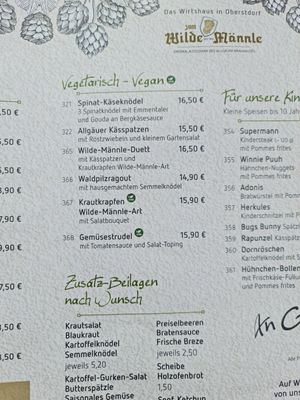 Das Wirtshaus in Oberstdorf
zum
Wilde Männle
Vegetarisch - Vegan
321 Spinat-Käseknödel 16,50 €
3 Spinatknödel mit Emmentaler
und Gouda an Bergkäsesauce
322 Allgäuer Kässpatzen 15,50 €
mit Röstzwiebeln und kleinem Gartensalat
365 Wilde-Männle-Duett 16,50 €
mit Kässpatzen und
Krautkrapfen Wilde-Männle-Art
366 Waldpilzragout 14,90 €
mit hausgemachtem Semmelknödel
367 Krautkrapfen 15,90 €
Wilde-Männle-Art
mit Salatbouquet
368 Gemüsestrudel 15,90 €
mit Tomatensauce und Salat-Toping
Zusatz-Beilagen
nach Wunsch
Krautsalat
Blaukraut
Kartoffelknödel
Semmelknödel
jeweils 5,20
Kartoffel-Gurken-Salat
Butterspätzle
Saisonales Gemüse
Preiselbeeren
Bratensauce
Frische Breze
jeweils 2,50
Scheibe
Holzofenbrot
1,50
Für unsere Kin
Kleine Speisen bis 10 Jahre
354 Supermann
Kindersteak (~120 g
mit Pommes frites
355 Winnie Puuh
Hähnchen-Nuggets
mit Pommes frites
356 Adonis
Bratwürstel mit Pommes
357 Herkules
Kinderschnitzel mit P
358 Bugs Bunny Spätz
359 Rapunzel Kässpatz
360 Dornröschen
Kartoffelknödel mit S
361 Hühnchen-Bollen
mit Frischkäse-Füllu
und Pommes frites
5,50 €
5,50 €
8,50 €